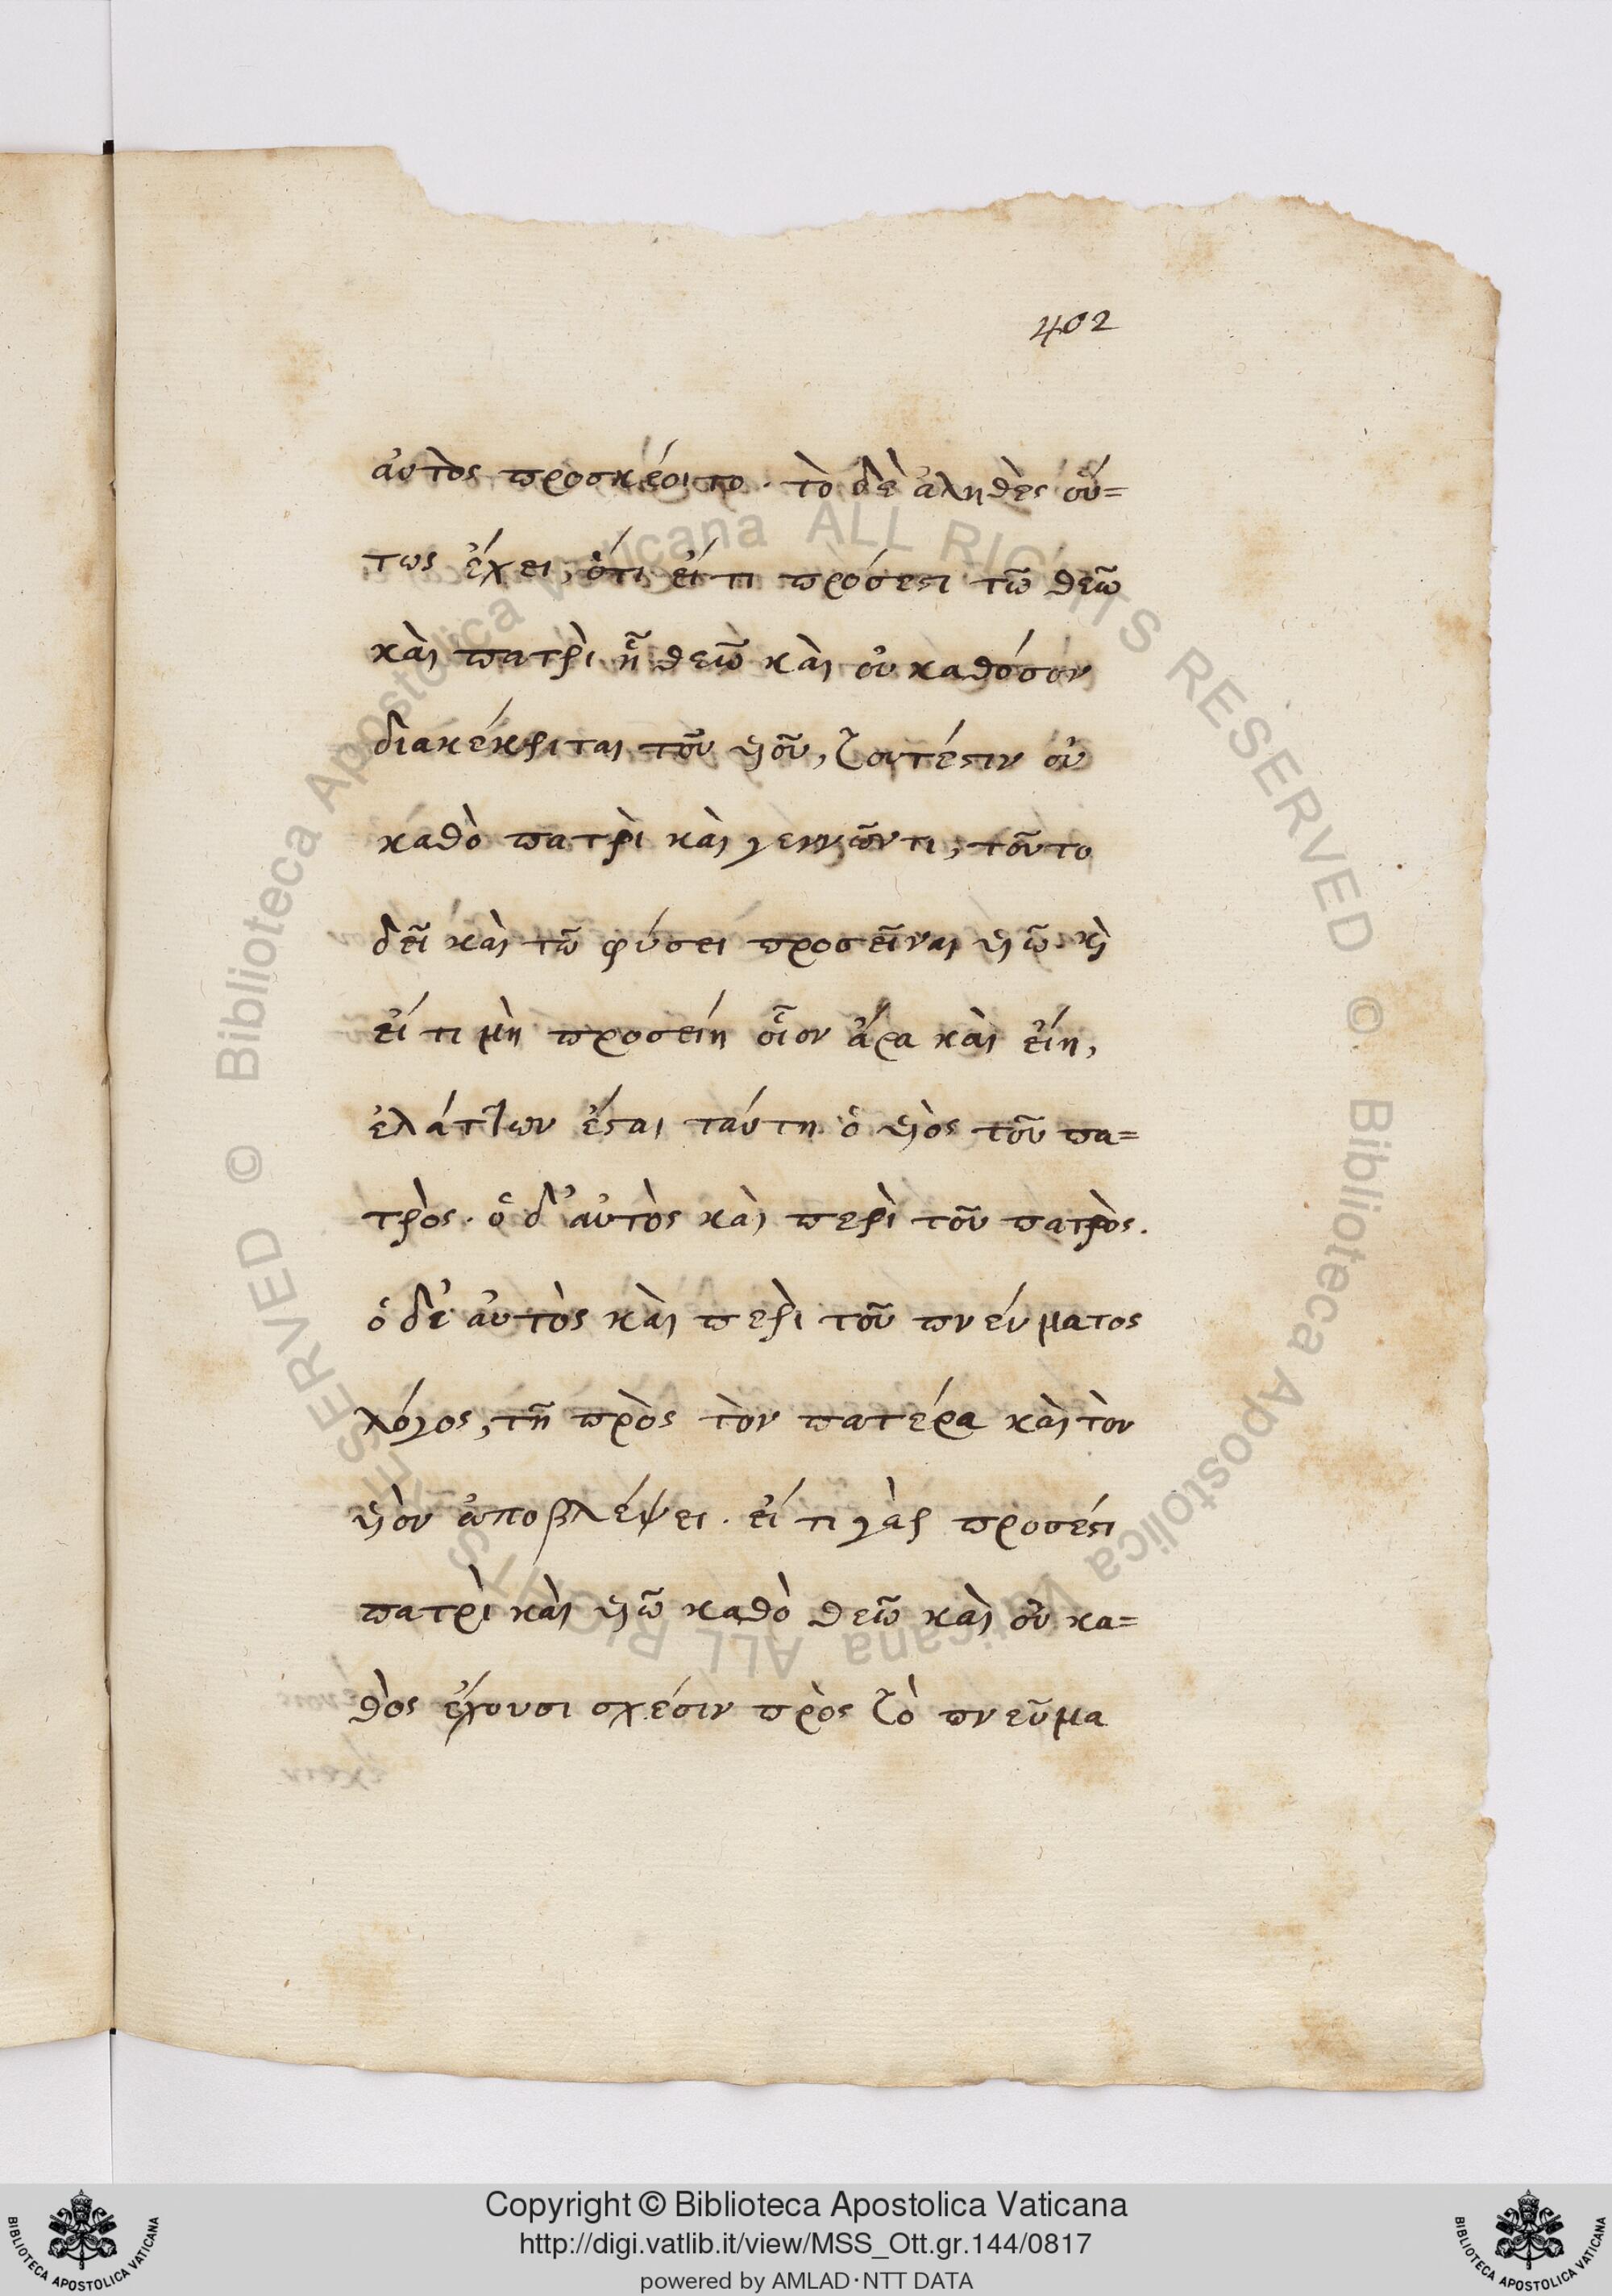 402
αὐτὸς προσκέοιτο. τὸ δὲ ἀληθὲς οὕ=
τως ἔχει, ὅτι εἴ τι πρόσεστι τῶ θεῶ
καὶ πατρὶ ᾗ θεῶ καὶ οὐ καθόσον
διακέκριται τοῦ υἱοῦ, τουτέστιν οὐ
καθὸ πατρὶ καὶ γεννῶντι, τοῦτο
δεῖ καὶ τῶ φύσει προσεῖναι υἱῶ. καὶ
εἴ τι μὴ προσείη οἷον ἄρα καὶ εἴη,
ἐλάττων ἔσται ταύτη ὁ υἱὸς τοῦ πα=
τρός. ὁ δ' αὐτὸς καὶ περὶ τοῦ πατρὸς.
ὁ δὲ αὐτὸς καὶ περὶ τοῦ πνεύματος
λόγος, τῆ πρὸς τὸν πατέρα καὶ τὸν
υἱὸν ἀποβλέψει. εἴ τι γὰρ προσέστι
πατρὶ καὶ υἱῶ καθὸ θεῶ καὶ οὐ κα=
θὸς ἔχουσι σχέσιν πρὸς τὸ πνεῦμα
© Biblioteca Apostolica Vaticana ALL RIGHTS RESERVED © Biblioteca Apostolica Vaticana ALL RIGHTS RESERVED
Copyright © Biblioteca Apostolica Vaticana
http://digi.vatlib.it/view/MSS_Ott.gr.144/0817
powered by AMLAD·NTT DATA
BIBLIOTECA APOSTOLICA VATICANA
BIBLIOTECA APOSTOLICA VATICANA